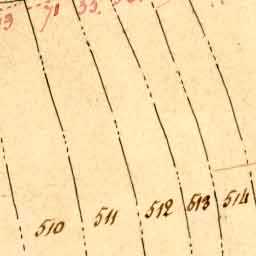 71 33
510 511 512 513 514